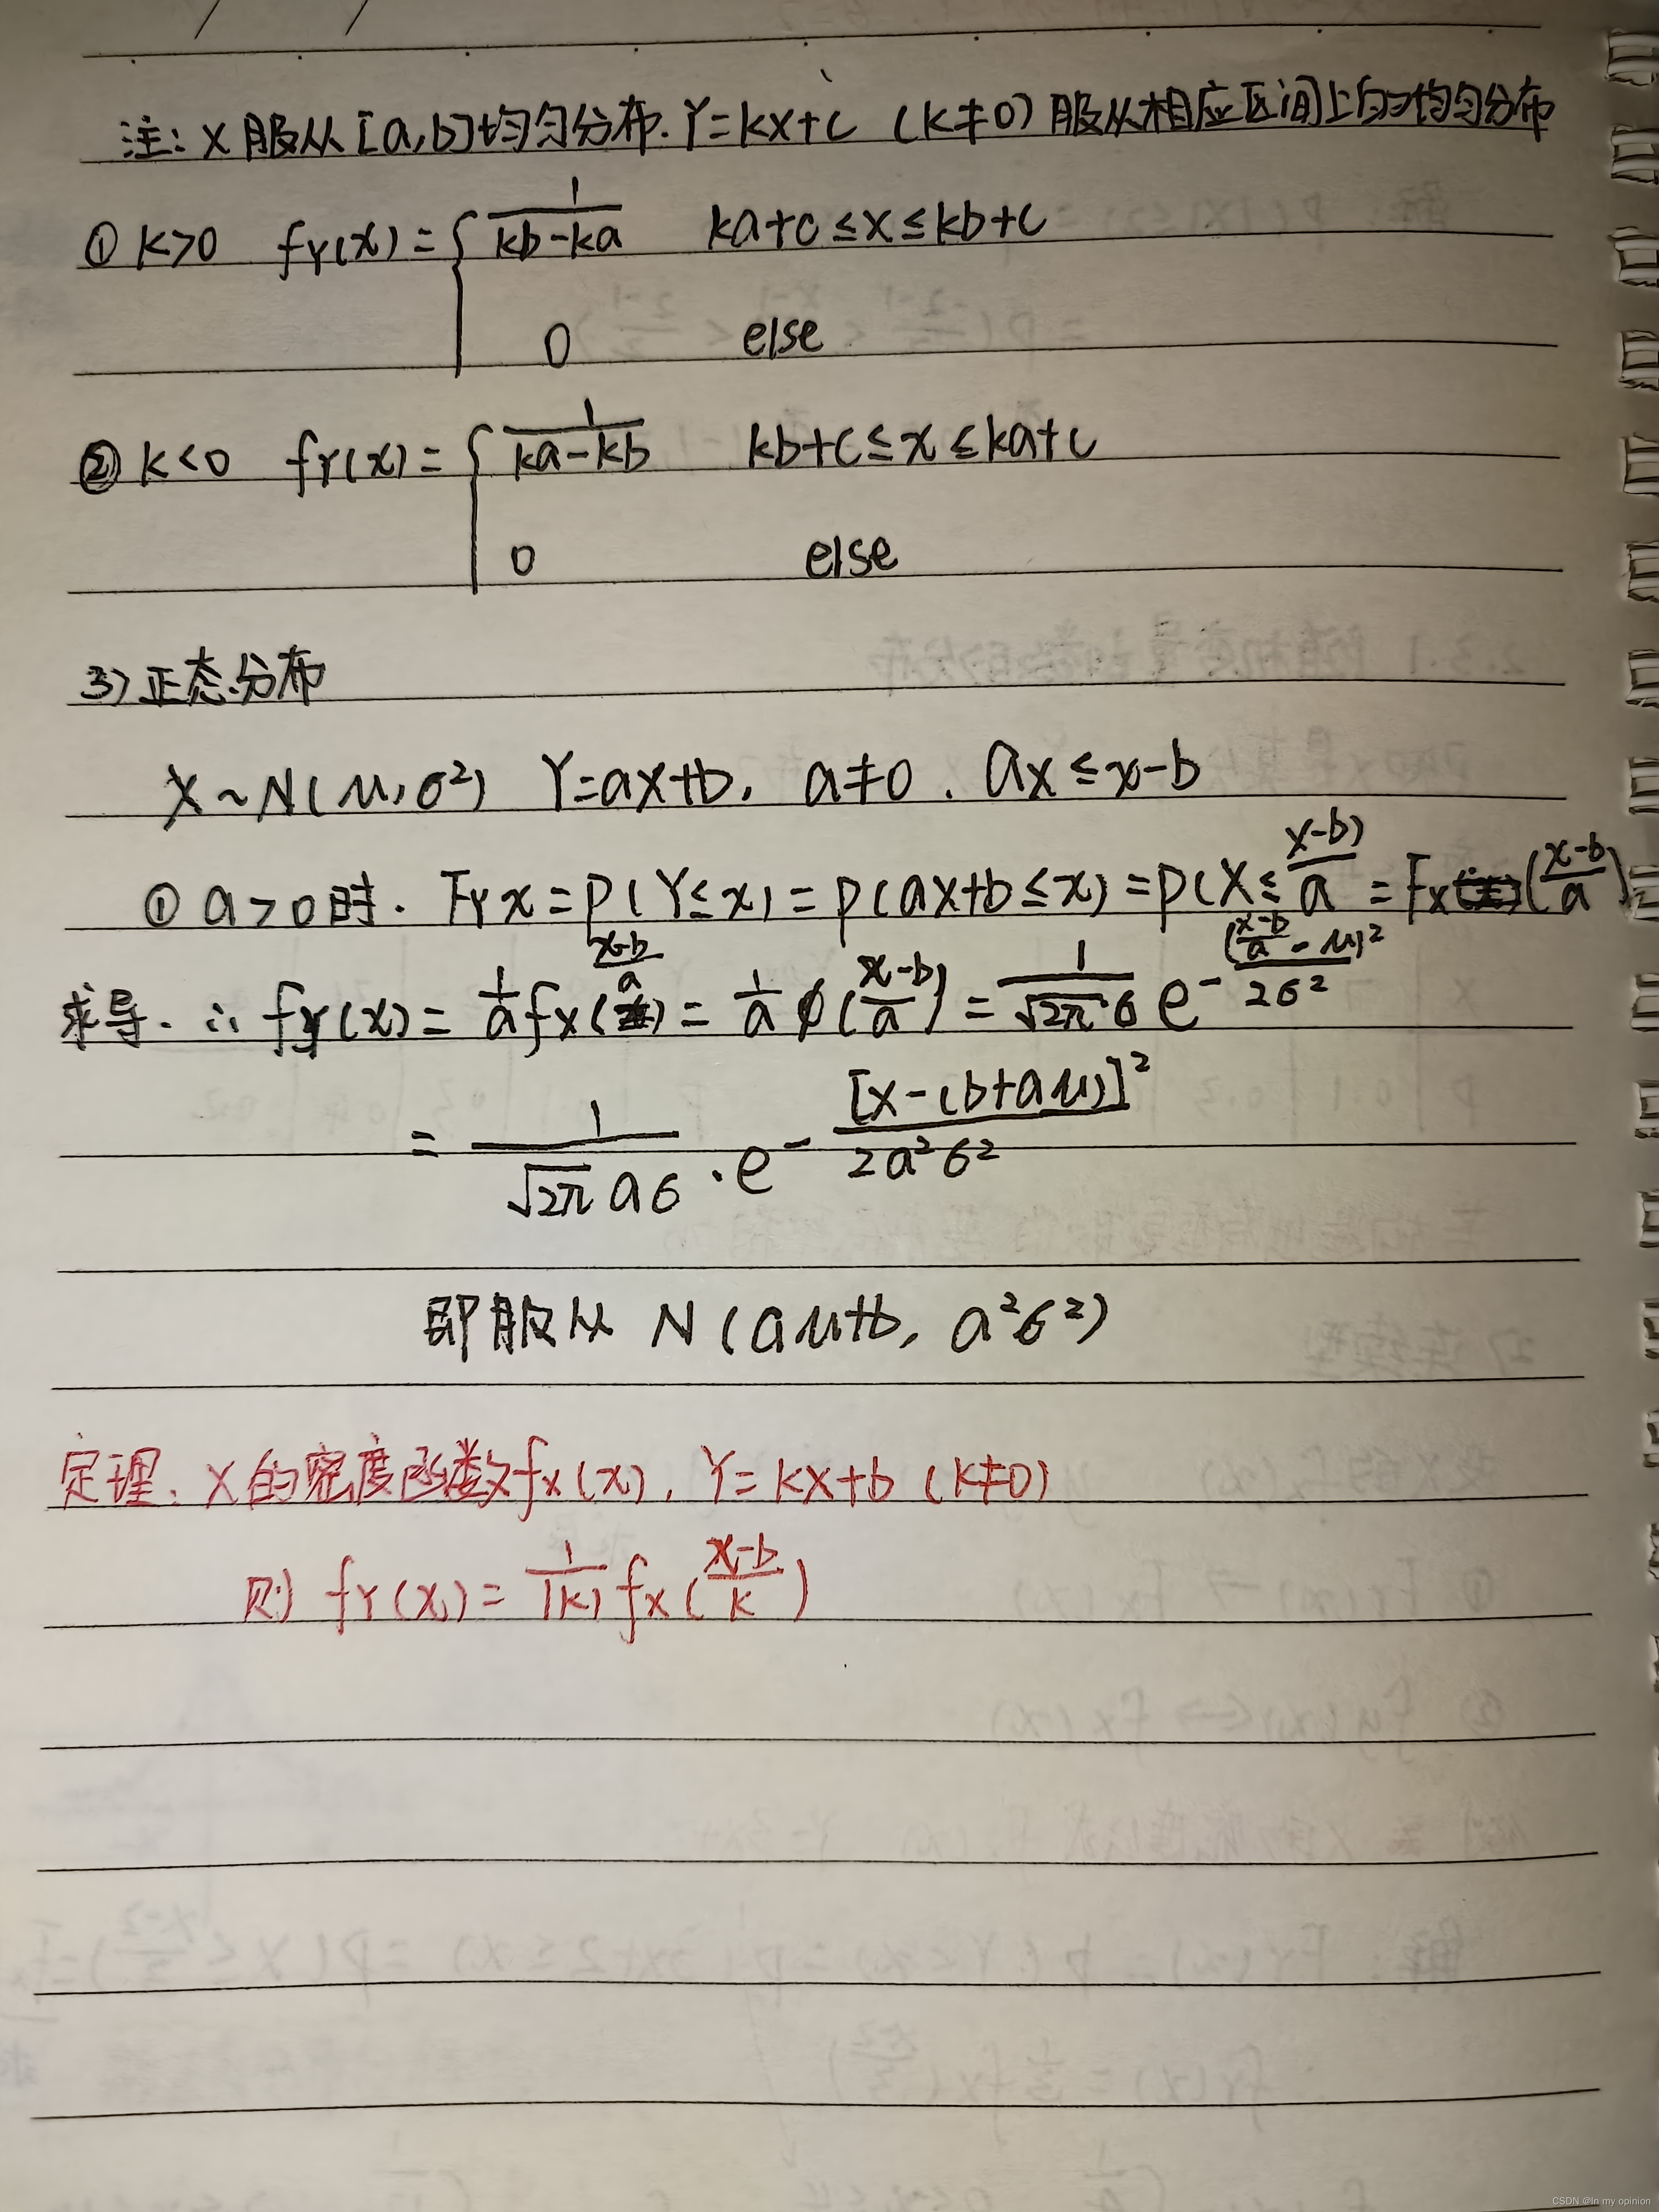 注: X服从[a,b]均匀分布. Y=kx+c (k≠0) 服从相应区间上的均匀分布
① k>0 fY(x)={ 1/(kb-ka) ka+c≤x≤kb+c
0 else
② k<0 fY(x)={ 1/(ka-kb) kb+c≤x≤ka+c
0 else
3) 正态分布
X~N(μ,σ²) Y=ax+b, a≠0. ax≤x-b
① a>0时. FYx=P(Y≤x)=P(ax+b≤x)=P(X≤(x-b)/a)=Fx((x-b)/a)
求导. ∴ fY(x)=1/a fx((x-b)/a)=1/a φ((x-b)/a)=1/(√2π σ) e^-((x-b)/a-μ)²/2σ²
=1/(√2π aσ)·e^-[x-(b+aμ)]²/2a²σ²
即服从 N(aμ+b, a²σ²)
定理. X的密度函数fx(x), Y=kx+b (k≠0)
则 fY(x)=1/|k| fx((x-b)/k)
CSDN @In my opinion